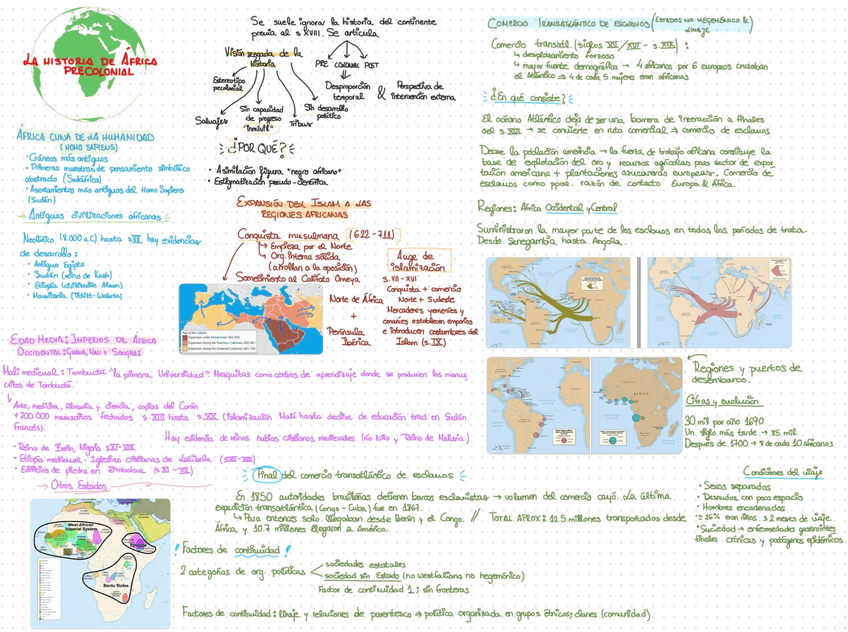 LA HISTORIA DE ÁFRICA
PRECOLONIAL
Se suele ignorar la historia del continente
previa al s.XVIII. Se articula
Visión sesgada de la
historia
PRE COLONIAL POST
Estereotipo
precolonial
Salvajes
Sin capacidad
de progreso
"inmóvil"
Tribus
Sin desarrollo
político
Desproporción
temporal
&
Perspectiva de
intervención externa
¿POR QUÉ?
• Asimilación figura "negro africano"
• Estigmatización pseudo-científica
ÁFRICA CUNA DE LA HUMANIDAD
(HOMO SAPIENS)
• Cráneos más antiguos
• Primeras muestras de pensamiento simbólico
abstracto (Sudáfrica)
• Asentamientos más antiguos del Homo Sapiens
(Sudán)
Antiguas civilizaciones africanas
Neolítico (8.000 a.C) hasta s.VII hay evidencias
de desarrollo:
• Antiguo Egipto
• Sudán (reino de Kush)
• Etiopía (civilización Aksum)
• Mauritania (Tichitt-Walata)
EXPANSIÓN DEL ISLAM A LAS
REGIONES AFRICANAS
Conquista musulmana (622-711)
Empieza por el Norte
Org. interna sólida
(arrollan a la oposición)
Sometimiento al Califato Omeya
Norte de África
+
Península
Ibérica
Auge de
islamización
s. VII - XVI
Conquista + comercio
Norte + Sudeste
Mercaderes yemeníes y
omaníes establecen emporios
e introducen costumbres del
Islam (s. IX)
EDAD MEDIA: IMPERIOS DE ÁFRICA
OCCIDENTAL: GHANA, MALI Y SONGHAI
Mali medieval: Tombuctú "la primera Universidad". Mezquitas como centros de aprendizaje donde se producen los manus-
critos de Tombuctú.
Arte, medicina, filosofía y ciencia, copias del Corán
+200.000 manuscritos fechados s.XIII hasta s.XX (islamización Mali hasta declive de educación trad en Sudán
Francés).
Hay evidencia de reinos nubios cristianos medievales (río Nilo y Reino de Makuria).
• Reino de Benín, Nigeria
• Etiopía medieval: Iglesias cristianas de Lalibela
• Edificios de piedra en Zimbabwe
Otros Estados
West-African
Imperial System
Bantu States
COMERCIO TRANSATLÁNTICO DE ESCLAVOS (ESTADOS NO HEGEMÓNICOS &
LINAJE)
Comercio transatl. (siglos XV/XVI - s.XIX):
desplazamiento forzoso
mayor fuente demográfica → 4 africanos por 6 europeos cruzaban
el Atlántico → 4 de cada 5 mujeres eran africanas
¿En qué consiste?
El océano Atlántico deja de ser una barrera de interacción a finales
del s.XV → se convierte en ruta comercial → comercio de esclavos
Desde la población amerindia → la fuerza de trabajo africana constituye la
base de explotación del oro y recursos agrícolas para sector de expor
tación americano + plantaciones azucareras europeas. Comercio de
esclavos como ppal. razón de contacto Europa & África.
Regiones: África Occidental y Central
Suministraron la mayor parte de los esclavos en todos los periodos de trata.
Desde Senegambia hasta Angola.
Regiones y puertos de
desembarco.
Cifras y evolución
30 mil por año 1670
Un siglo más tarde → 85 mil
Después de 1700 → 8 de cada 10 africanos
Condiciones del viaje
• Sexos separados
• Desnudos con poco espacio
• Hombres encadenados
• 26% eran niños ± 2 meses de viaje.
• Suciedad → enfermedades gastrointes
tinales crónicas y patógenos epidémicos
Final del comercio transatlántico de esclavos
En 1850 autoridades brasileñas detienen barcos esclavistas → volumen del comercio cayó. La última
expedición transatlántica (Congo - Cuba) fue en 1867.
Para entonces solo llegaban desde Benín y el Congo. // TOTAL APROX: 12.5 millones transportados desde
África y 10.7 millones llegaron a América.
! Factores de continuidad !
2 categorías de org. políticas
sociedades estatales
sociedad sin Estado (no westfaliana no hegemónico)
Factor de continuidad 1: sin fronteras
Factores de continuidad: linaje y relaciones de parentesco → política organizada en grupos étnicos; clanes (comunidad)